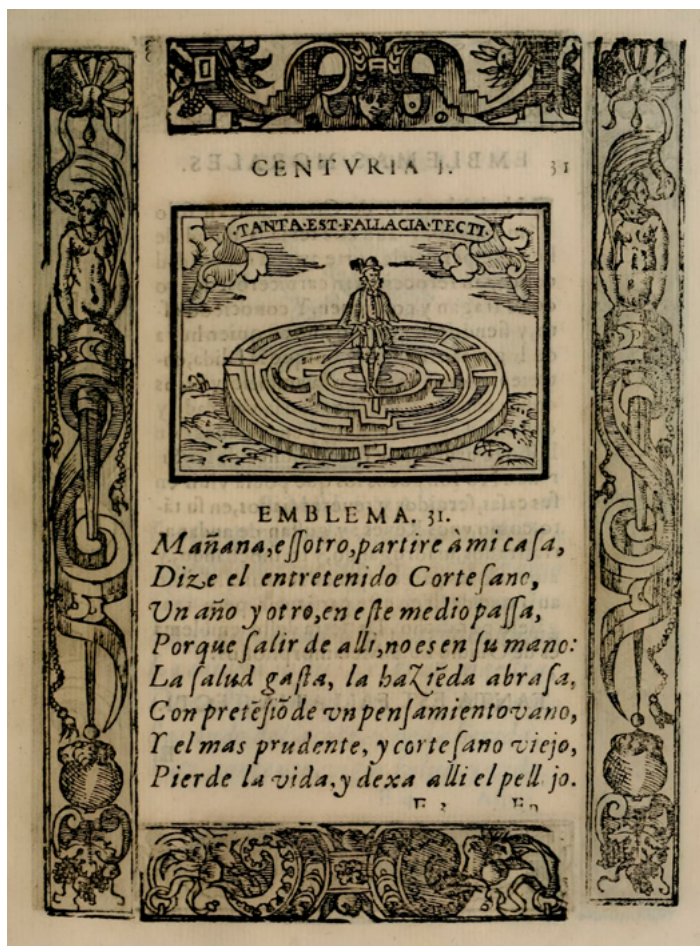 CENTVRIA I. 31
·TANTA·EST·FALLACIA·TECTI·
EMBLEMA. 31.
Mañana, eſſotro, partire à mi caſa,
Dize el entretenido Corteſano,
Un año y otro, en eſte medio paſſa,
Porque ſalir de alli, no es en ſu mano:
La ſalud gaſta, la haziēda abraſa,
Con pretēſiō de vn penſamiento vano,
Y el mas prudente, y corteſano viejo,
Pierde la vida, y dexa alli el pell jo.